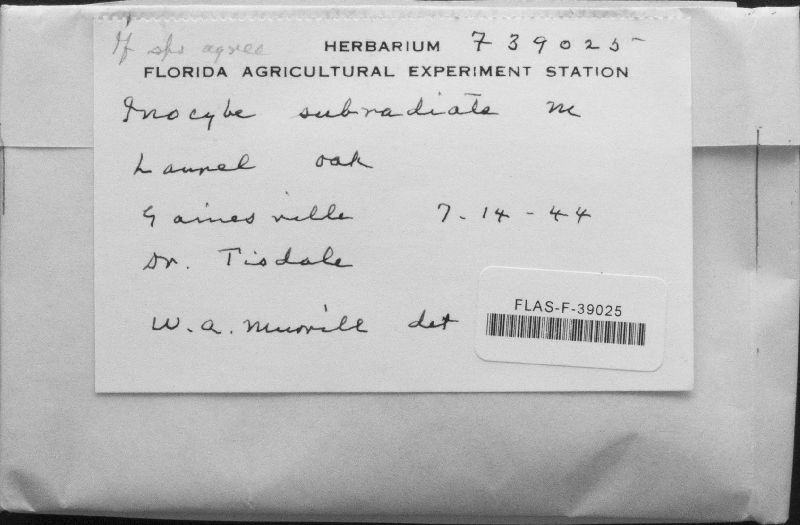 If sps agree HERBARIUM F39025
FLORIDA AGRICULTURAL EXPERIMENT STATION
Inocybe subradiata M
Laurel oak
Gainesville 7-14-44
Dr. Tisdale
W. A. Murrill det
FLAS-F-39025